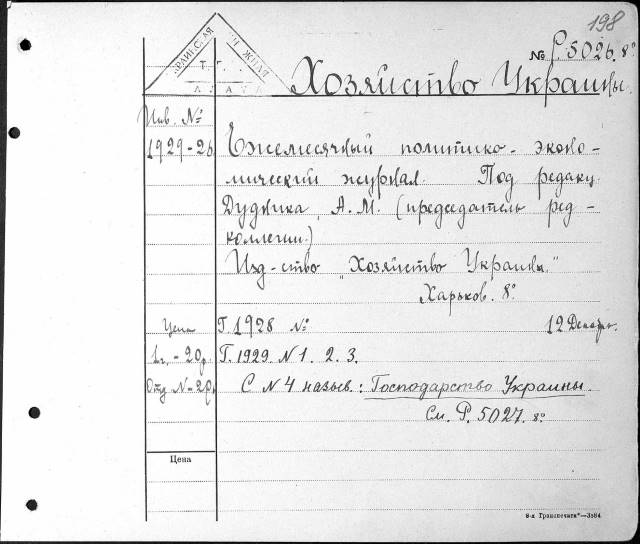 198
№ Р.5026.8°
Хозяйство Украины.
Инв. №
1929-26
Ежемесячный политико-эконо-
мический журнал. Под редакц.
Дудника, А.М. (председатель ред-
коллегии.)
Изд-ство "Хозяйство Украины."
Харьков. 8°
Цена
Г. 1928 № 12 Декабрь.
1 г. - 20 р. Г. 1929. N 1. 2. 3.
Отд N - 2 р. С N 4 назыв.: Господарство Украины.
См. Р. 5027. 8°
Цена
8-я Транспечати"—3584